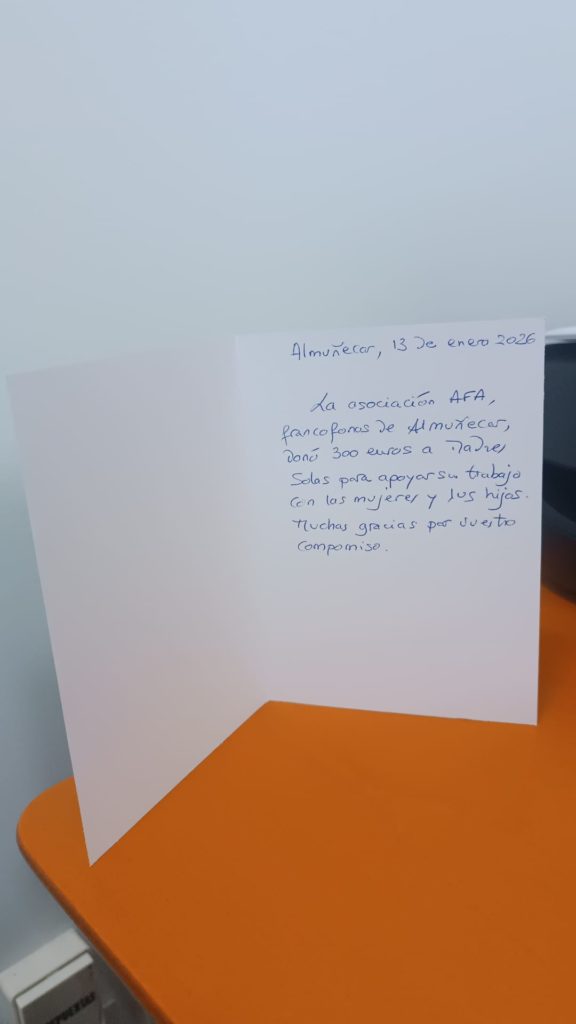 Almuñecar, 13 de enero 2026
La asociación AFA,
francofonos de Almuñecar,
donó 300 euros a Madres
Solas para apoyar su trabajo
con las mujeres y sus hijos.
Muchas gracias por vuestro
compomiso.